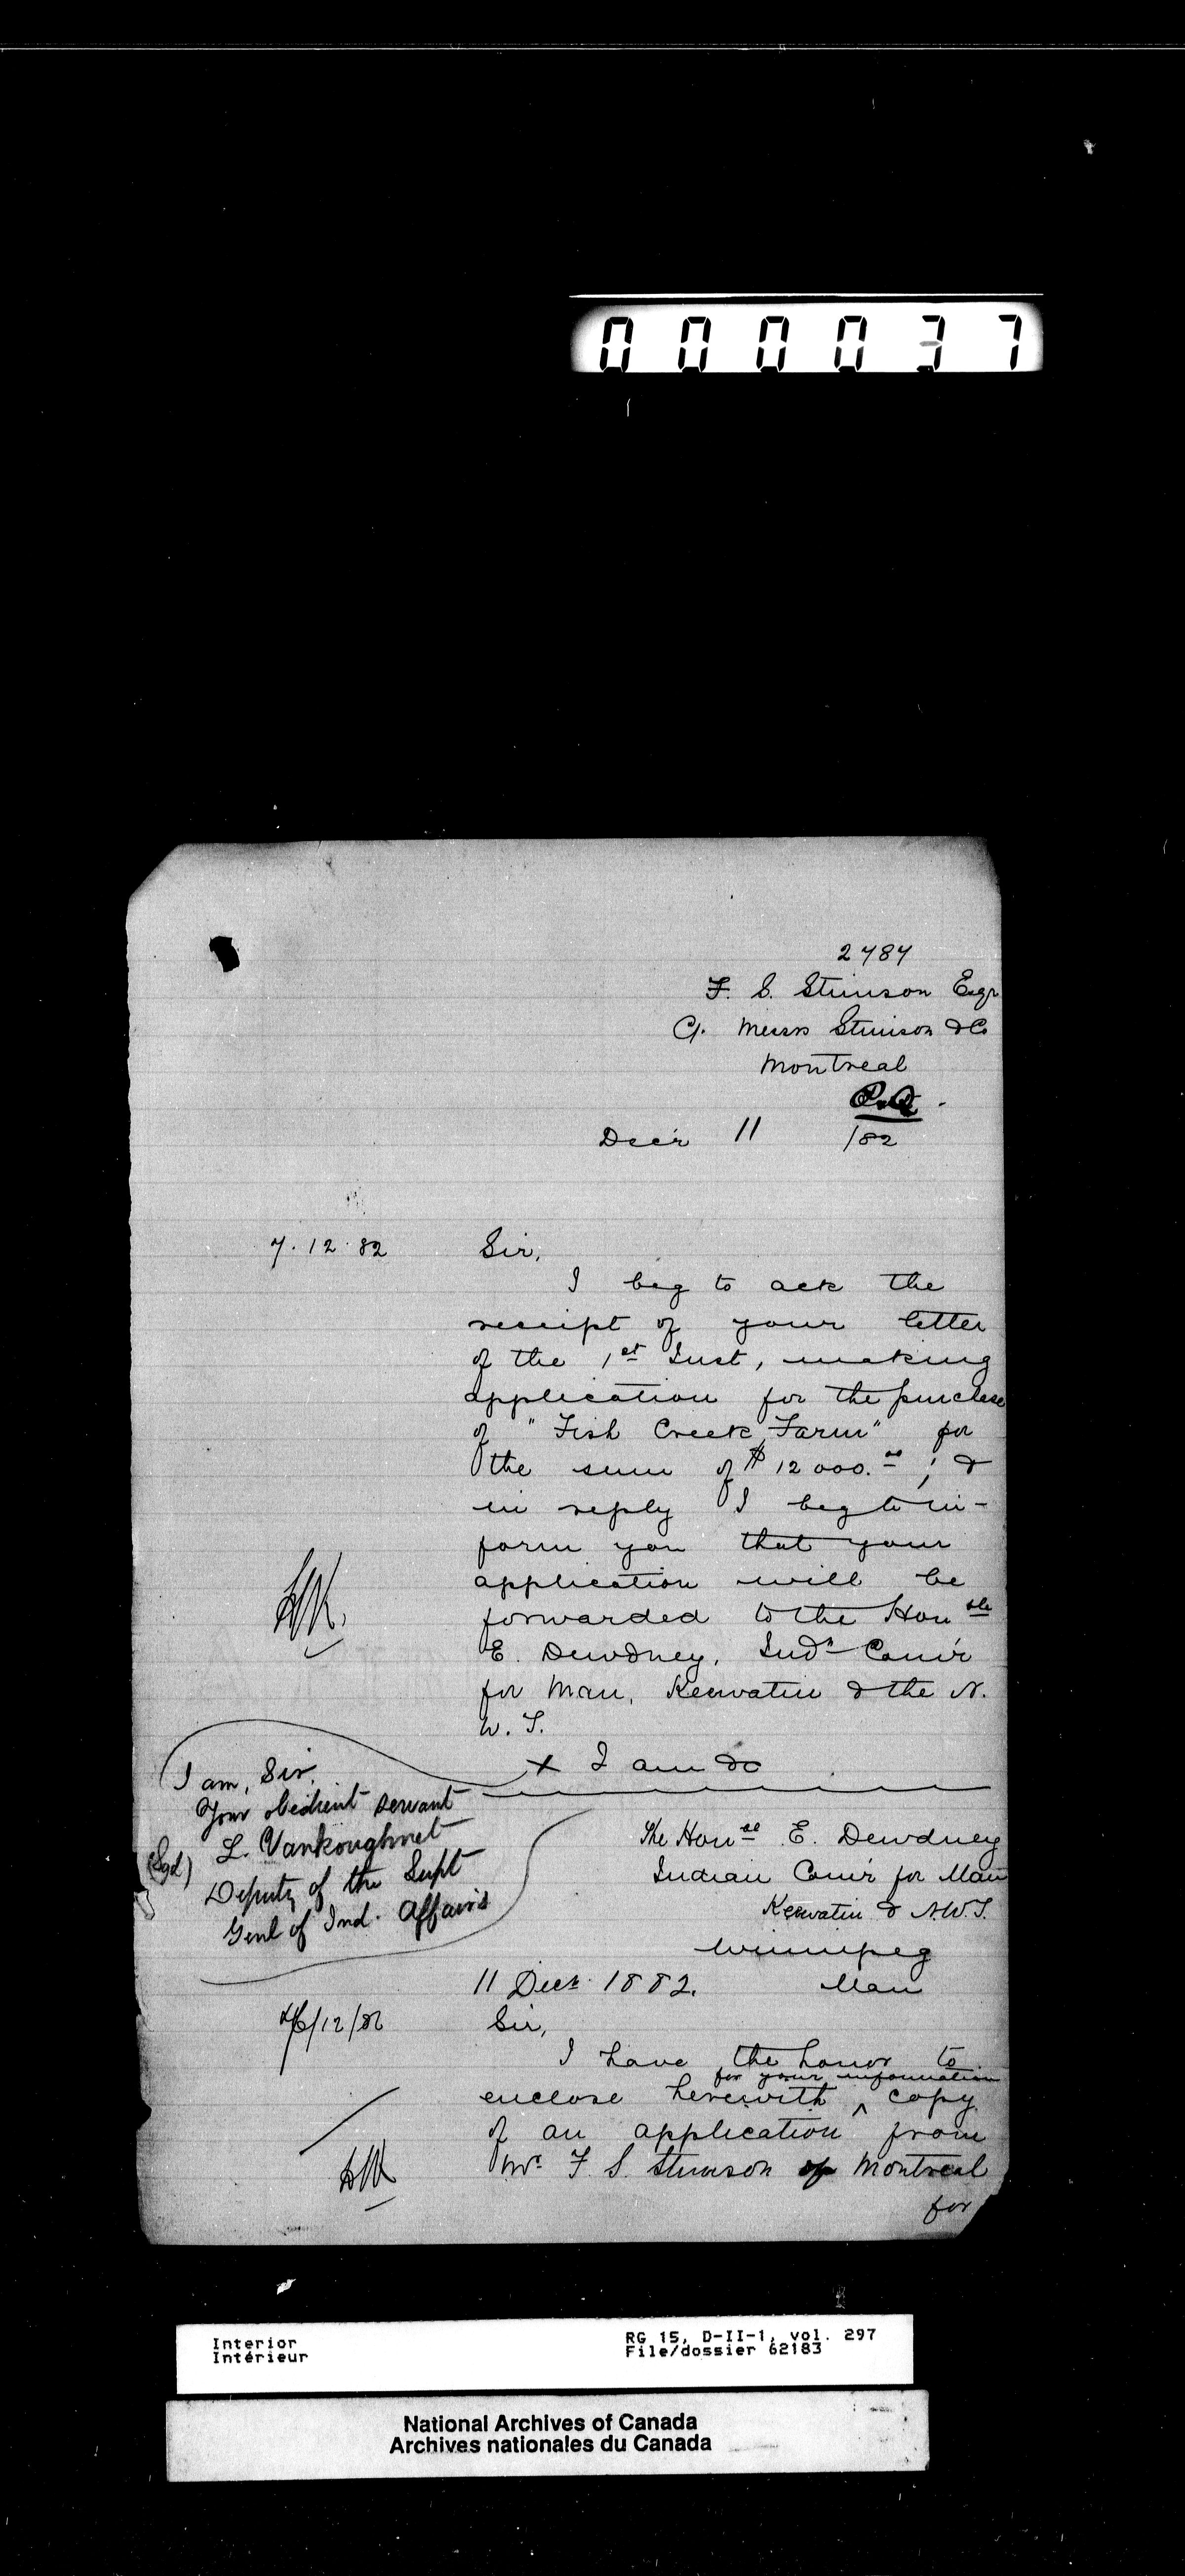 000037
2787
F. S. Stimson Esqr
C/. Messrs Stimson & Co
Montreal
P.Q.
Decr 11 /82
7.12.82
Sir,
I beg to ack the
receipt of your letter
of the 1st Inst, making
application for the purchase
of "Fish Creek Farm" for
the sum of $12000.00; &
in reply I beg to in-
form you that your
application will be
forwarded to the Honble
E. Dewdney, Indn Comr
for Man, Keewatin & the N.
W. T.
x I am &c
I am, Sir,
Your obedient servant
(Sgd) L. Vankoughnet
Deputy of the Supt
Genl of Ind. Affairs
The Honble E. Dewdney
Indian Comr for Man
Keewatin & N.W.T.
Winnipeg
Man
11 Decr 1882.
/12/82
Sir,
I have the honor to
enclose herewith ^ for your information copy
of an application from
Mr. F. S. Stimson of Montreal
for
Interior
Intérieur
RG 15, D-II-1, vol. 297
File/dossier 62183
National Archives of Canada
Archives nationales du Canada